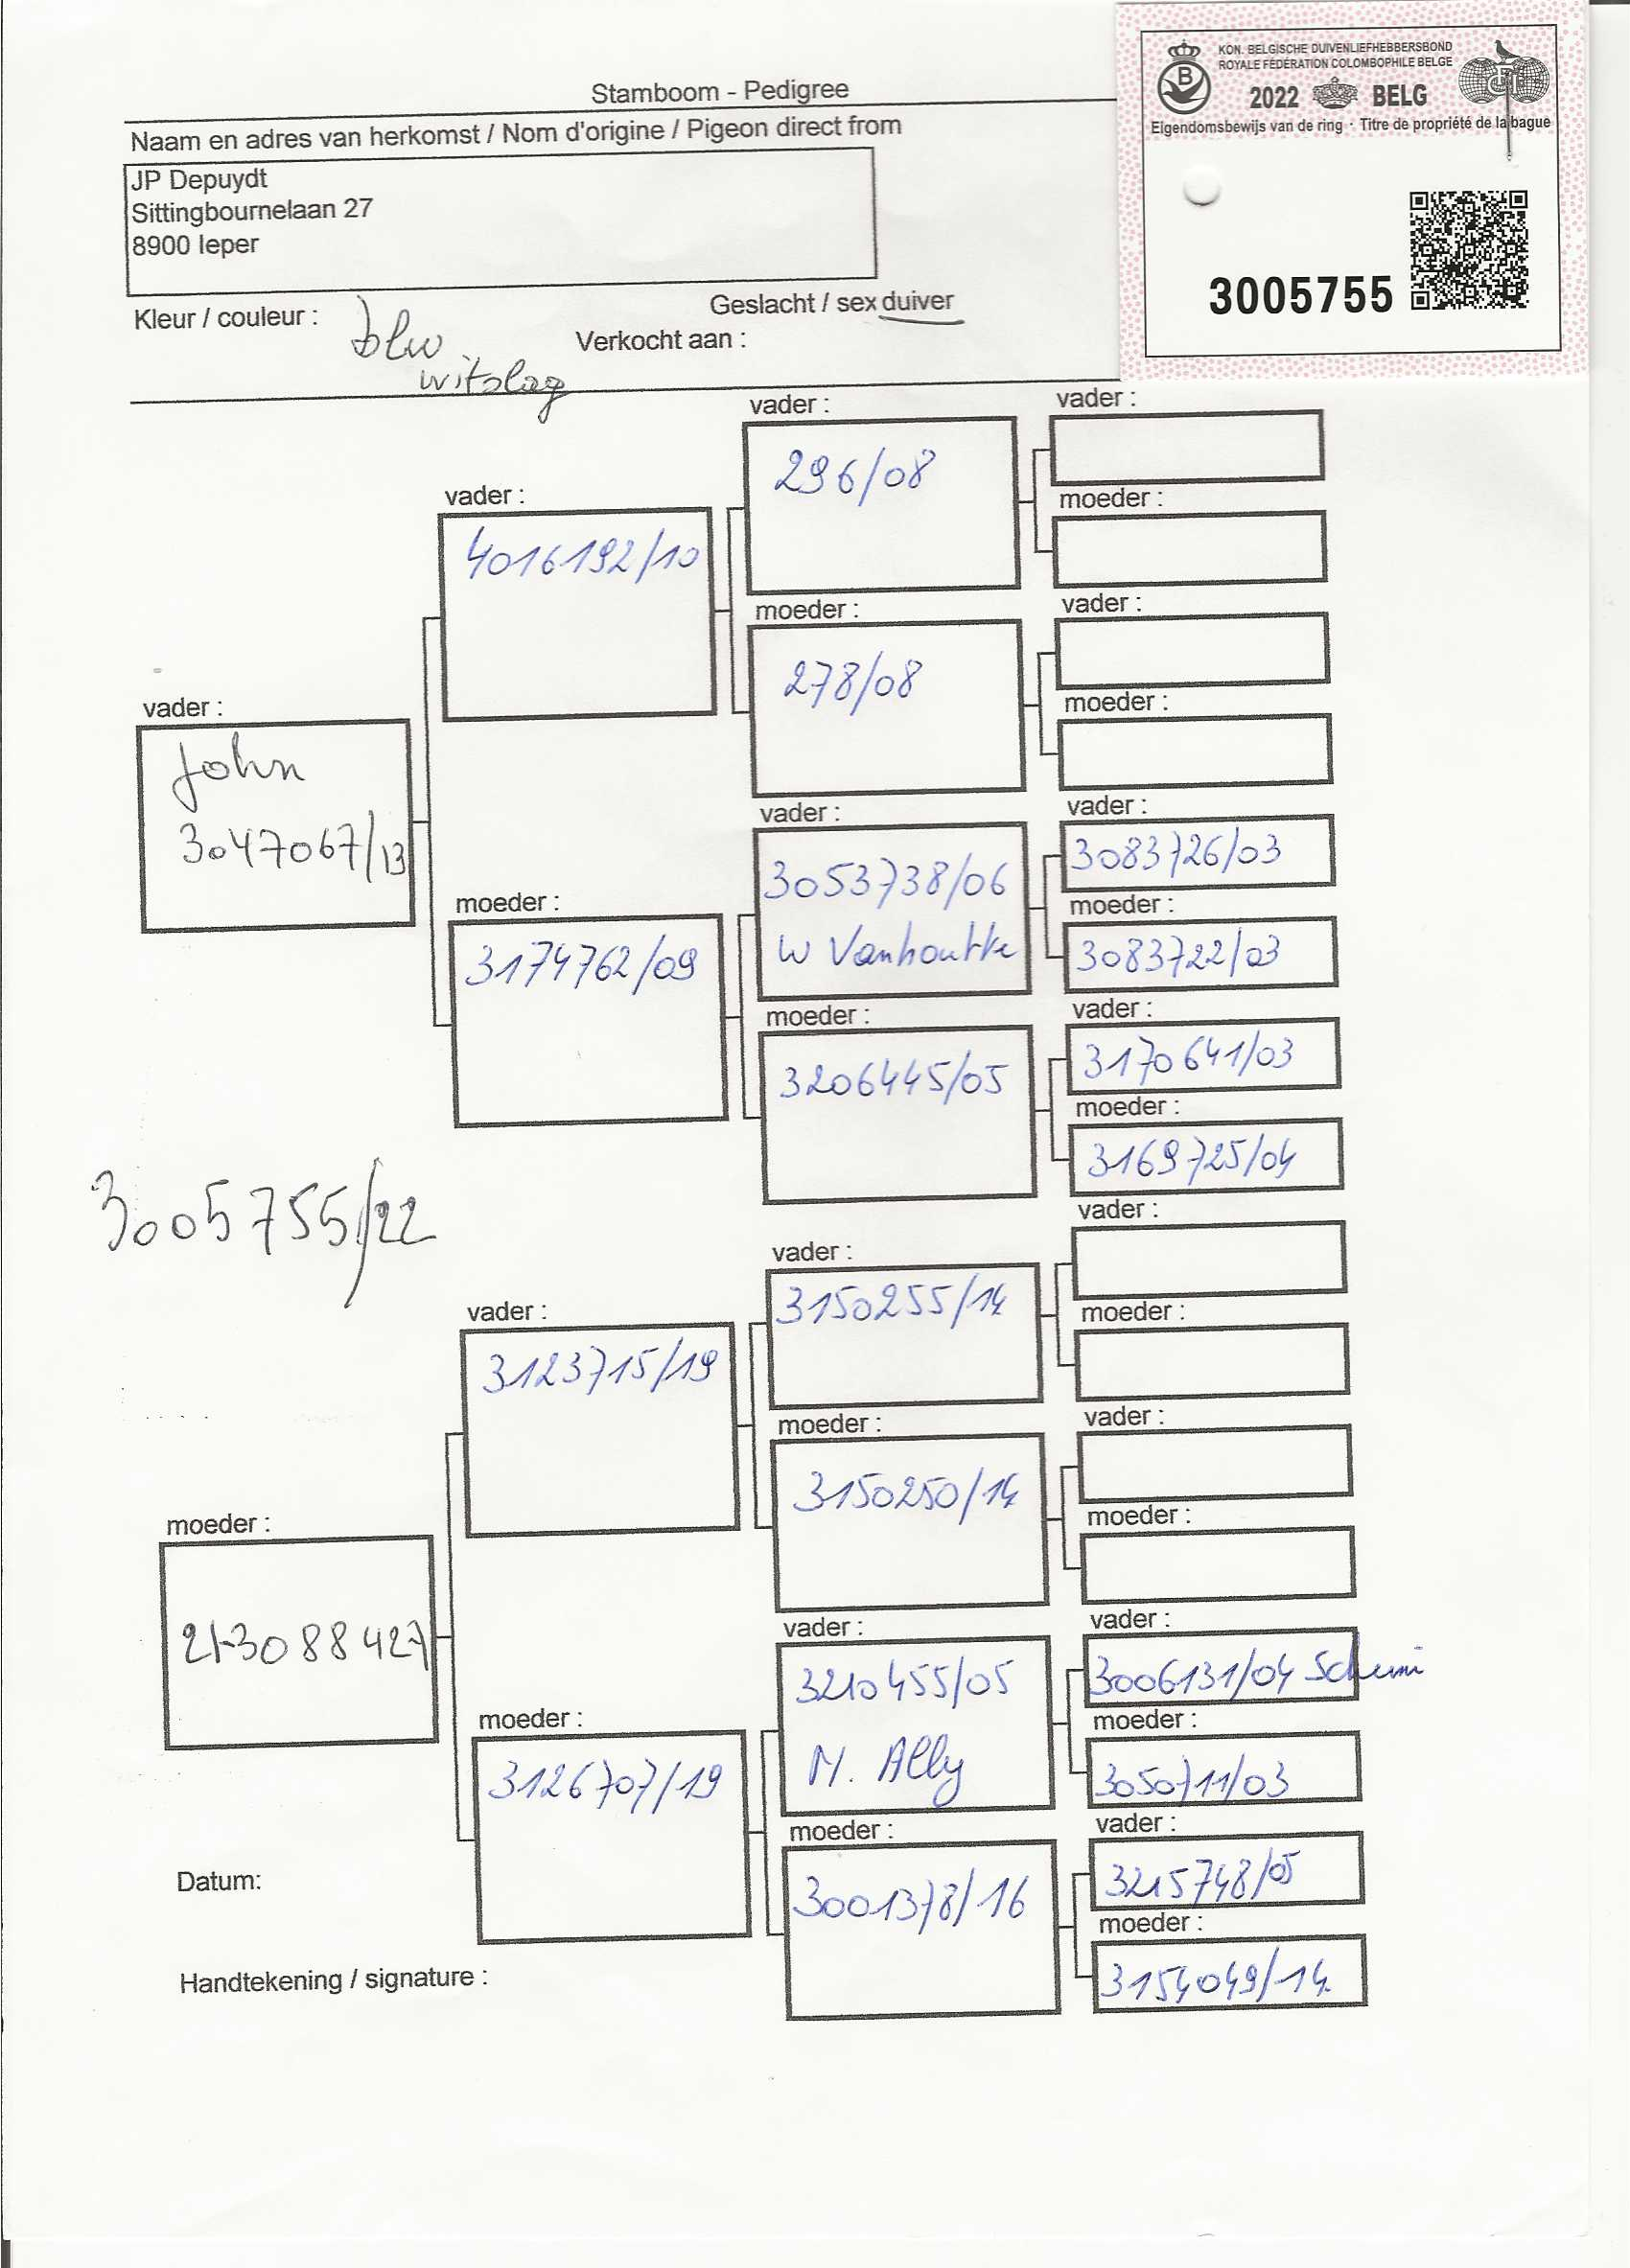 KON. BELGISCHE DUIVENLIEFHEBBERSBOND
ROYALE FÉDÉRATION COLOMBOPHILE BELGE
2022 BELG
Eigendomsbewijs van de ring · Titre de propriété de la bague
3005755
Stamboom - Pedigree
Naam en adres van herkomst / Nom d'origine / Pigeon direct from
JP Depuydt
Sittingbournelaan 27
8900 Ieper
Kleur / couleur :
blw
witslag
Geslacht / sex duiver
Verkocht aan :
vader :
John
3047067/13
vader :
4016192/10
vader :
296/08
vader :
moeder :
moeder :
278/08
vader :
moeder :
moeder :
3174762/09
vader :
3053738/06
W Vanhoutte
vader :
3083726/03
moeder :
3083722/03
moeder :
3206445/05
vader :
3170641/03
moeder :
3169725/04
3005755/22
moeder :
21-3088427
vader :
3123715/19
vader :
3150255/14
vader :
moeder :
moeder :
3150250/14
vader :
moeder :
moeder :
3126707/19
vader :
3210455/05
M. Ally
vader :
3006131/04
moeder :
3050711/03
moeder :
3001378/16
vader :
3215748/05
moeder :
3154049/14
Datum:
Handtekening / signature :